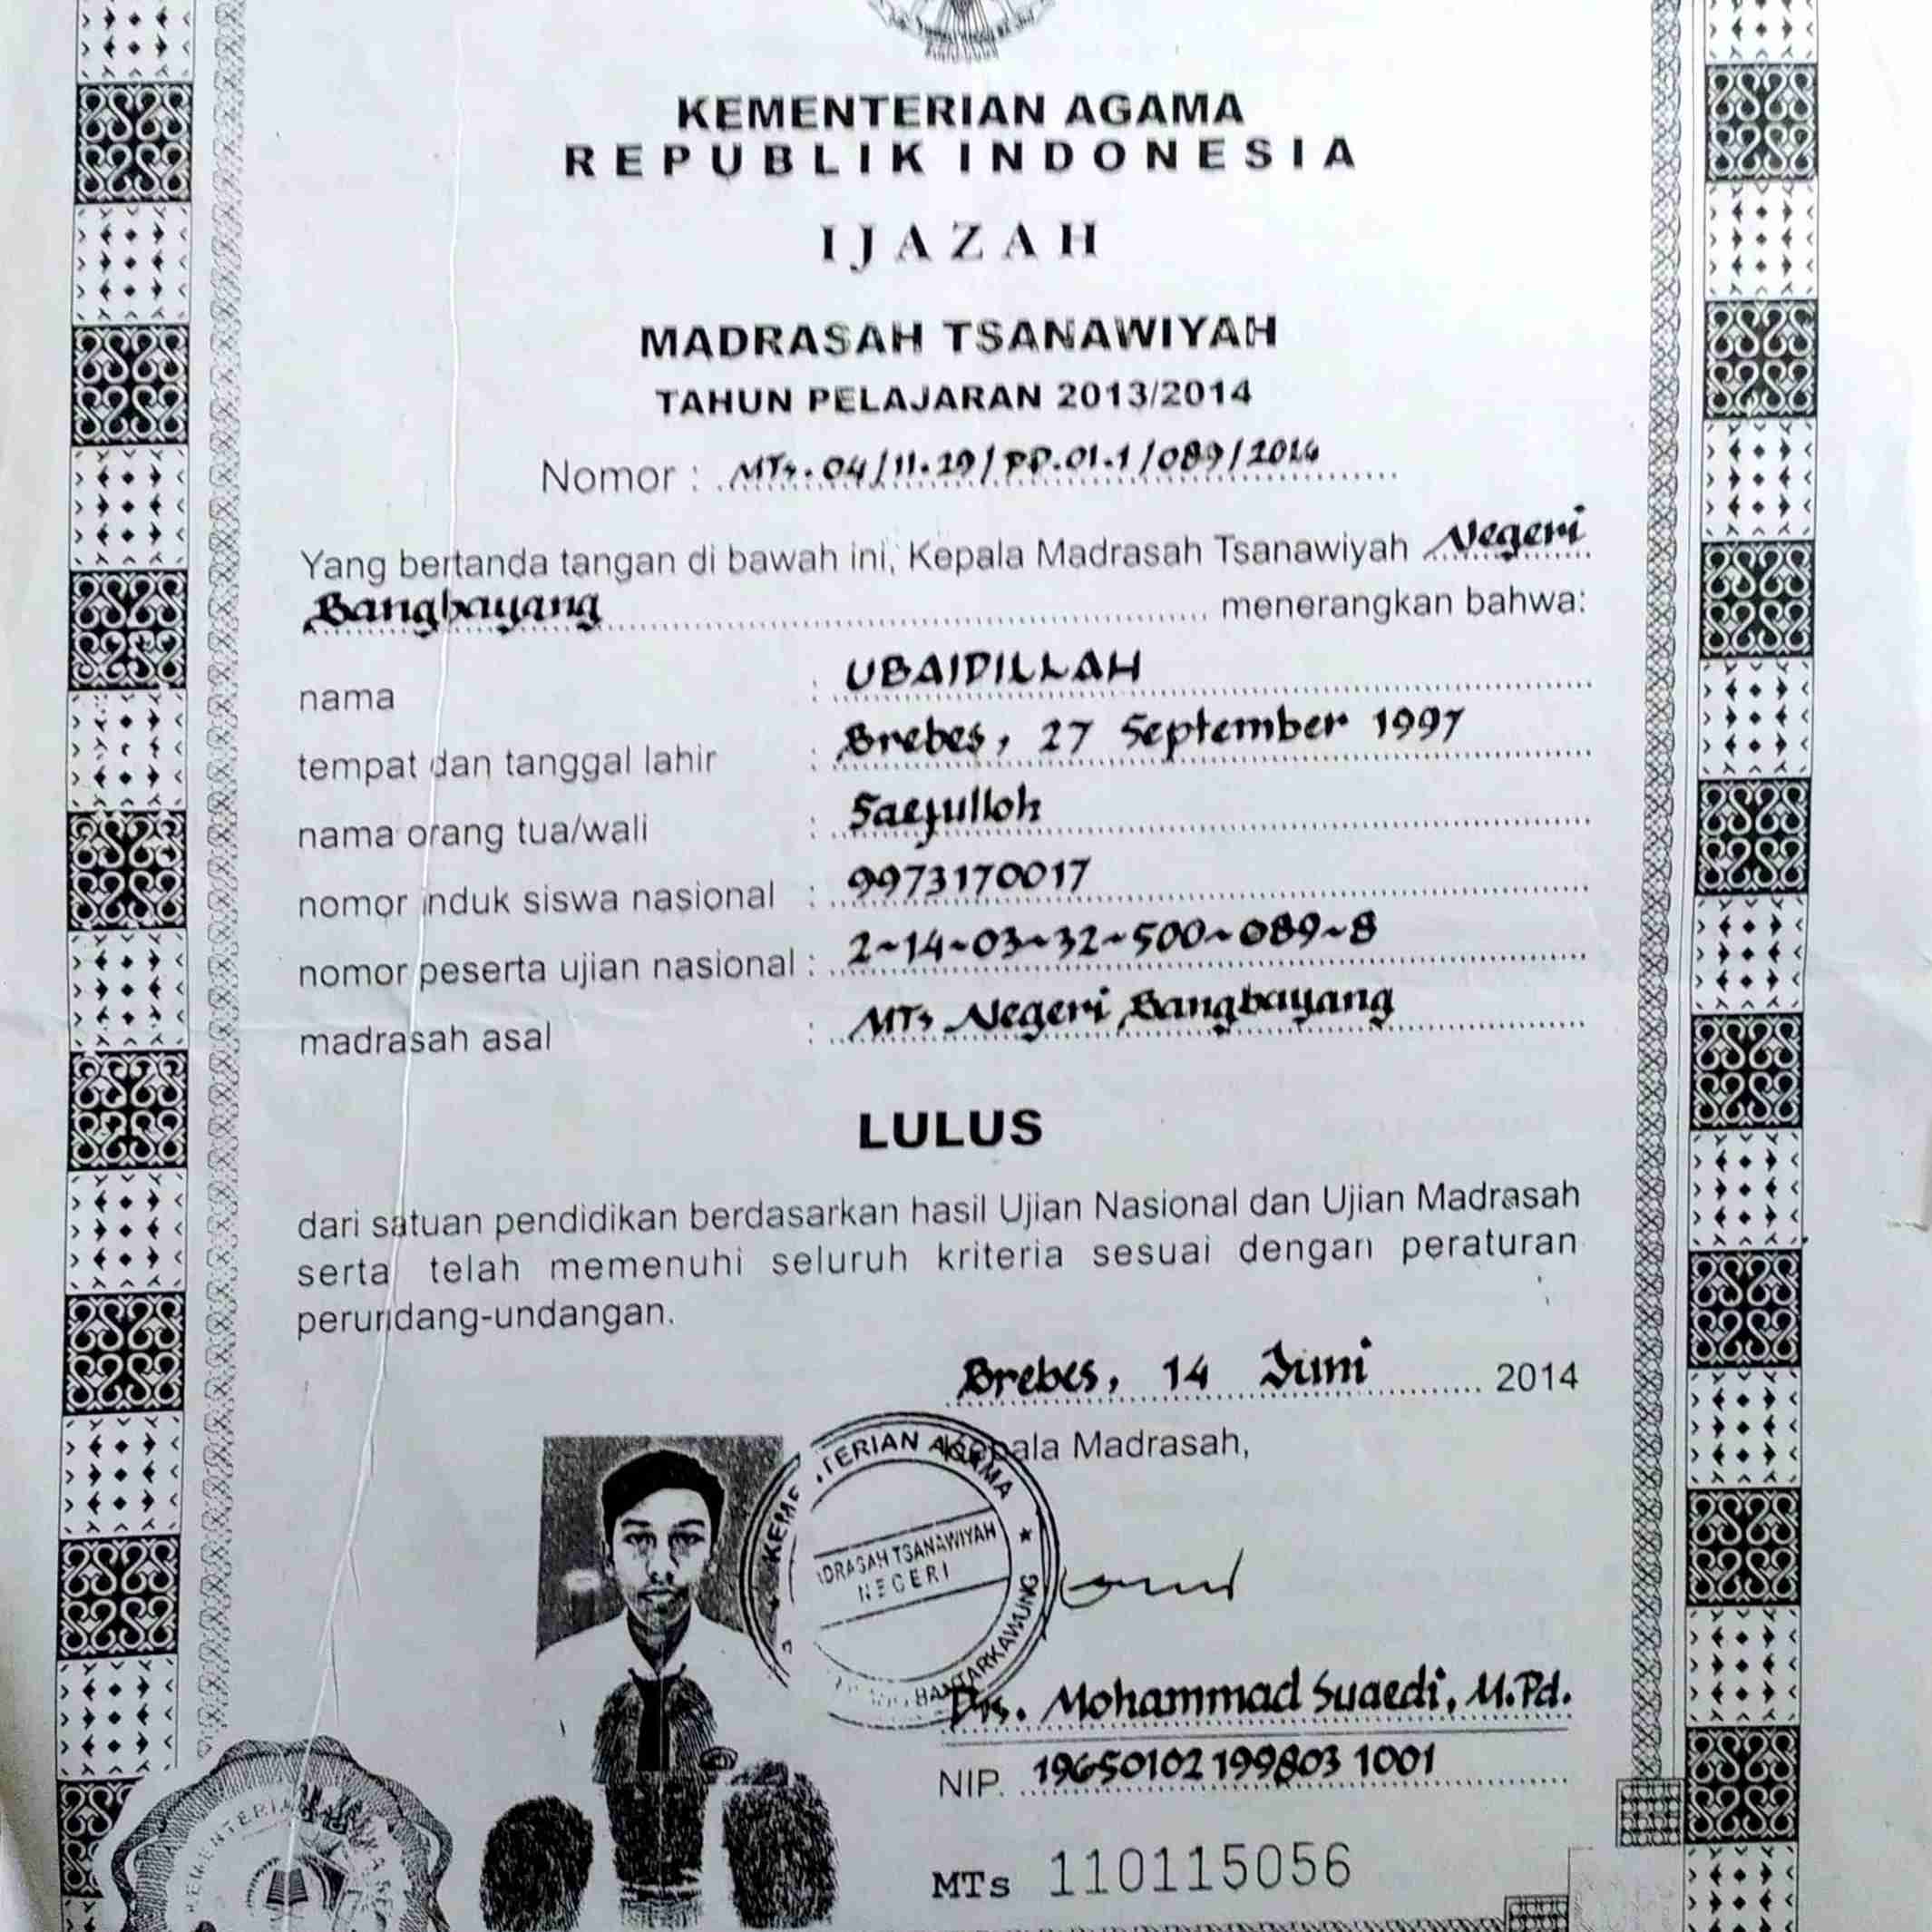 KEMENTERIAN AGAMA
REPUBLIK INDONESIA
IJAZAH
MADRASAH TSANAWIYAH
TAHUN PELAJARAN 2013/2014
Nomor : MTs.04/11.29/PP.01.1/089/2014
Yang bertanda tangan di bawah ini, Kepala Madrasah Tsanawiyah Negeri
Bangbayang menerangkan bahwa:
nama : UBAIDILLAH
tempat dan tanggal lahir : Brebes, 27 September 1997
nama orang tua/wali : Saefulloh
nomor induk siswa nasional : 9973170017
nomor peserta ujian nasional : 2-14-03-32-500-089-8
madrasah asal : MTs Negeri Bangbayang
LULUS
dari satuan pendidikan berdasarkan hasil Ujian Nasional dan Ujian Madrasah
serta telah memenuhi seluruh kriteria sesuai dengan peraturan
perundang-undangan.
Brebes, 14 Juni 2014
Kepala Madrasah,
KEME TERIAN AGAMA
DRASAH TSANAWIYAH
NEGERI
BANTARKAWUNG
Drs. Mohammad Suaedi, M.Pd.
NIP. 19650102 199803 1001
MTs 110115056
KEMENTERIA